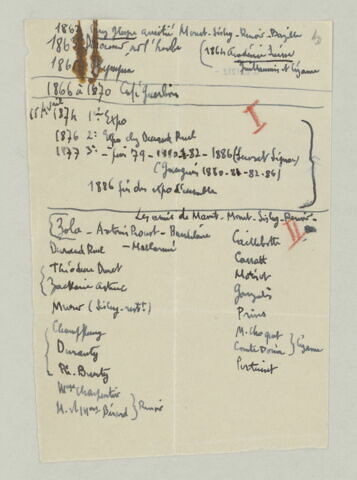 1862 groupe amitié Monet-Sisley-Renoir-Bazille
1863
1864 Académie Suisse
Guillaumin et Cézanne
186
1866 à 1870 Café Guerbois
I
15 Avril 1874 1ère Expo
1876 2e Expo chez Durand Ruel
1877 3e - 79 - 82 - 1886 (Seurat Signac)
(Gauguin 1880-81-82-86)
1886 fin des expo d'ensemble
Les amis de Manet-Monet-Sisley-Renoir-
II
Zola - Antonin Proust - Baudelaire
Durand Ruel - Mallarmé
Théodore Duret
Zacharie Astruc
Murer (Sisley-
Champfleury
Duranty
Ph. Burty
Mme Charpentier
M. et Mme Bérard } Renoir
Caillebotte
Cassatt
Morisot
Gonzalès
Prins
M. Choquet
Comte Doria } Cézanne